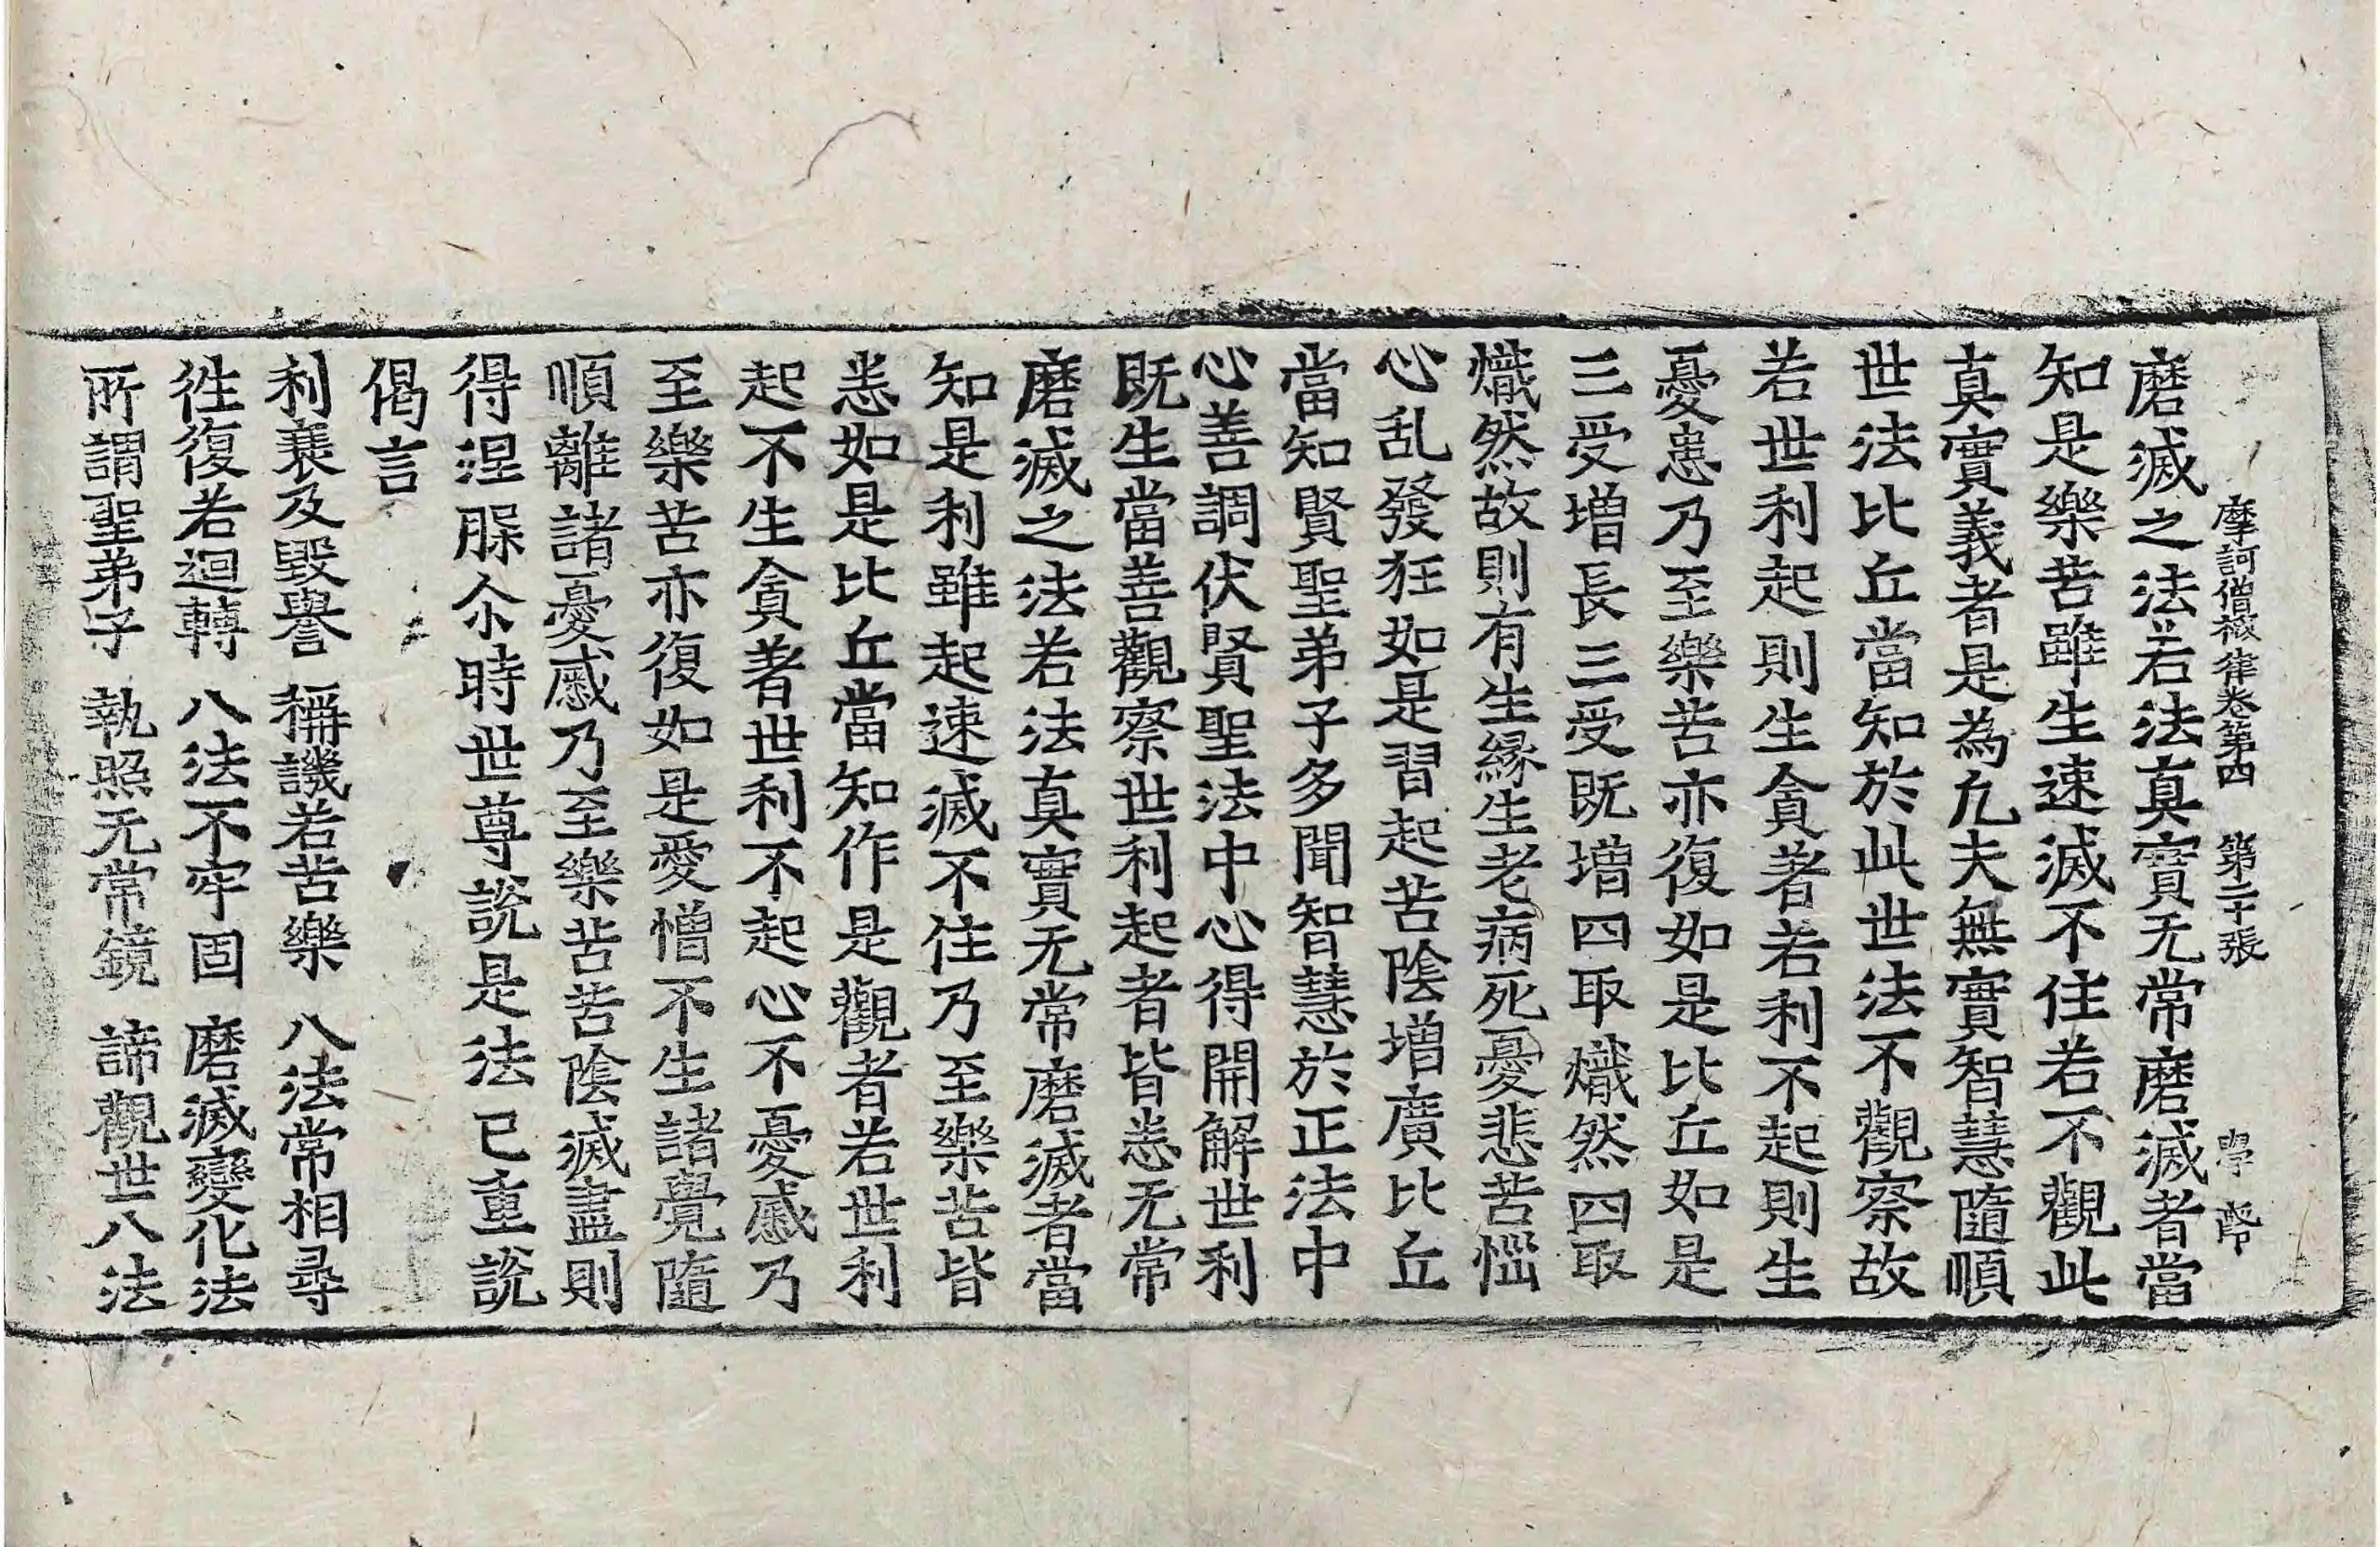 摩訶僧祇律卷第四 第二十張 學
磨滅之法若法真實无常磨滅者當
知是樂苦雖生速滅不住若不觀此
真實義者是為凢夫無實智慧隨順
世法比丘當知於此世法不觀察故
若世利起則生貪著若利不起則生
憂患乃至樂苦亦復如是比丘如是
三受增長三受既增四取熾然四取
熾然故則有生緣生老病死憂悲苦惱
心乱發狂如是習起苦陰增廣比丘
當知賢聖弟子多聞智慧於正法中
心善調伏賢聖法中心得開解世利
既生當善觀察世利起者皆悉无常
磨滅之法若法真實无常磨滅者當
知是利雖起速滅不住乃至樂苦皆
悉如是比丘當知作是觀者若世利
起不生貪著世利不起心不憂慼乃
至樂苦亦復如是愛憎不生諸覺隨
順離諸憂慼乃至樂苦苦陰滅盡則
得涅槃尒時世尊說是法已重說
偈言
利衰及毀譽 稱譏若苦樂 八法常相尋
徃復若迴轉 八法不牢固 磨滅變化法
所謂聖弟子 執照无常鏡 諦觀世八法